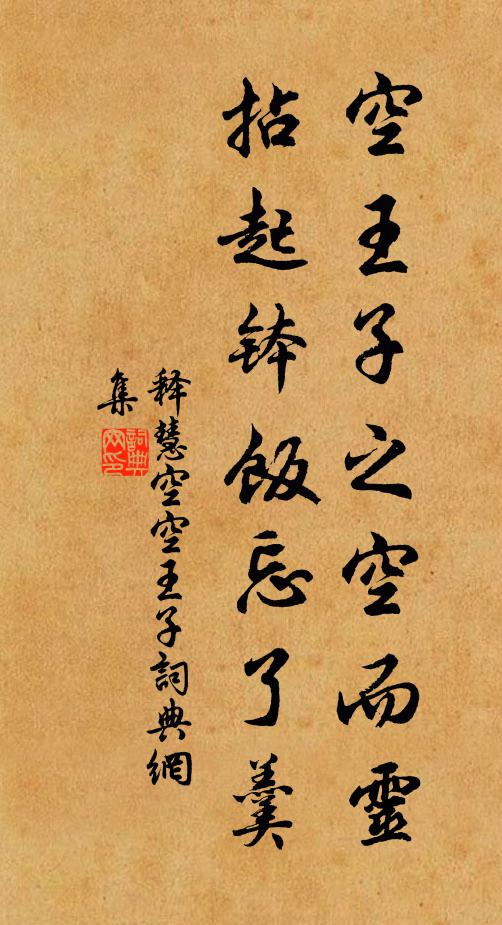 空王子之空而靈
拈起鉢飯忘了羹
釋慧空空王子詞典網
集
詞典網印